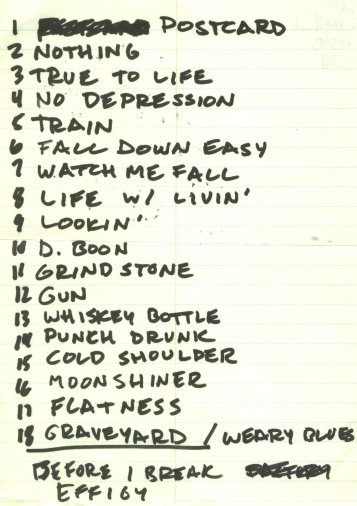 1 POSTCARD
2 NOTHING
3 TRUE TO LIFE
4 NO DEPRESSION
5 TRAIN
6 FALL DOWN EASY
7 WATCH ME FALL
8 LIFE W/ LIVIN'
9 LOOKIN'
10 D. BOON
11 GRINDSTONE
12 GUN
13 WHISKEY BOTTLE
14 PUNCH DRUNK
15 COLD SHOULDER
16 MOONSHINER
17 FLATNESS
18 GRAVEYARD / WEARY BLUES
BEFORE I BREAK
EFFIGY